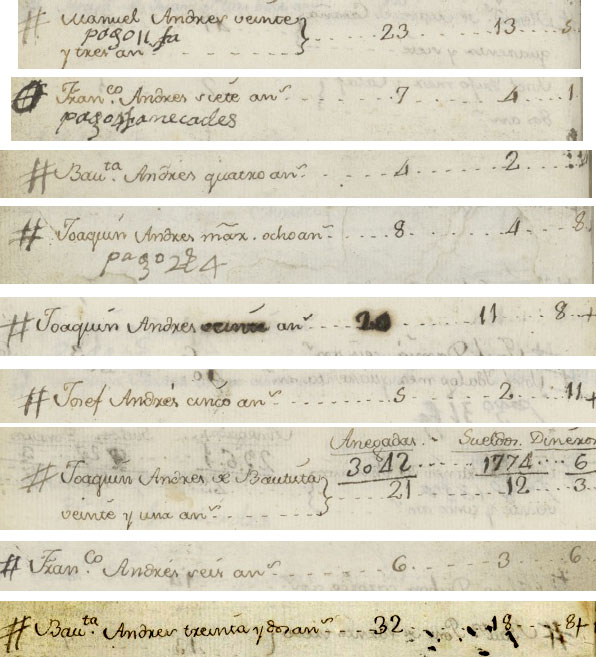 # Manuel Andres veinte
pago 11 fa
y tres an.s - - - 23 - - - 13 - - 5
# Fran.co Andres siete an.s - - - 7 - - - 4 - - 1
pago 4 fanecades
# Bau.ta Andres quatro an.s - - - 4 - - - 2
# Joaquin Andres mar. ocho an.s - - - 8 - - - 4 - - 8
pago 28 4
# Joaquin Andres veinte an.s 20 - - - 11 - - 8 +
# Josef Andres cinco an.s - - - 5 - - - 2 - - 11 +
Anegadas. Sueldos. Dineros
3042 - - - 1774 - - 6
# Joaquin Andres de Bautista
21 - - - 12 - - 3
veinte y una an.s
# Fran.co Andres seis an.s - - - 6 - - - 3 - - 6
# Bau.ta Andres treinta y dos an.s - - 32 - - - 18 - - 8 +